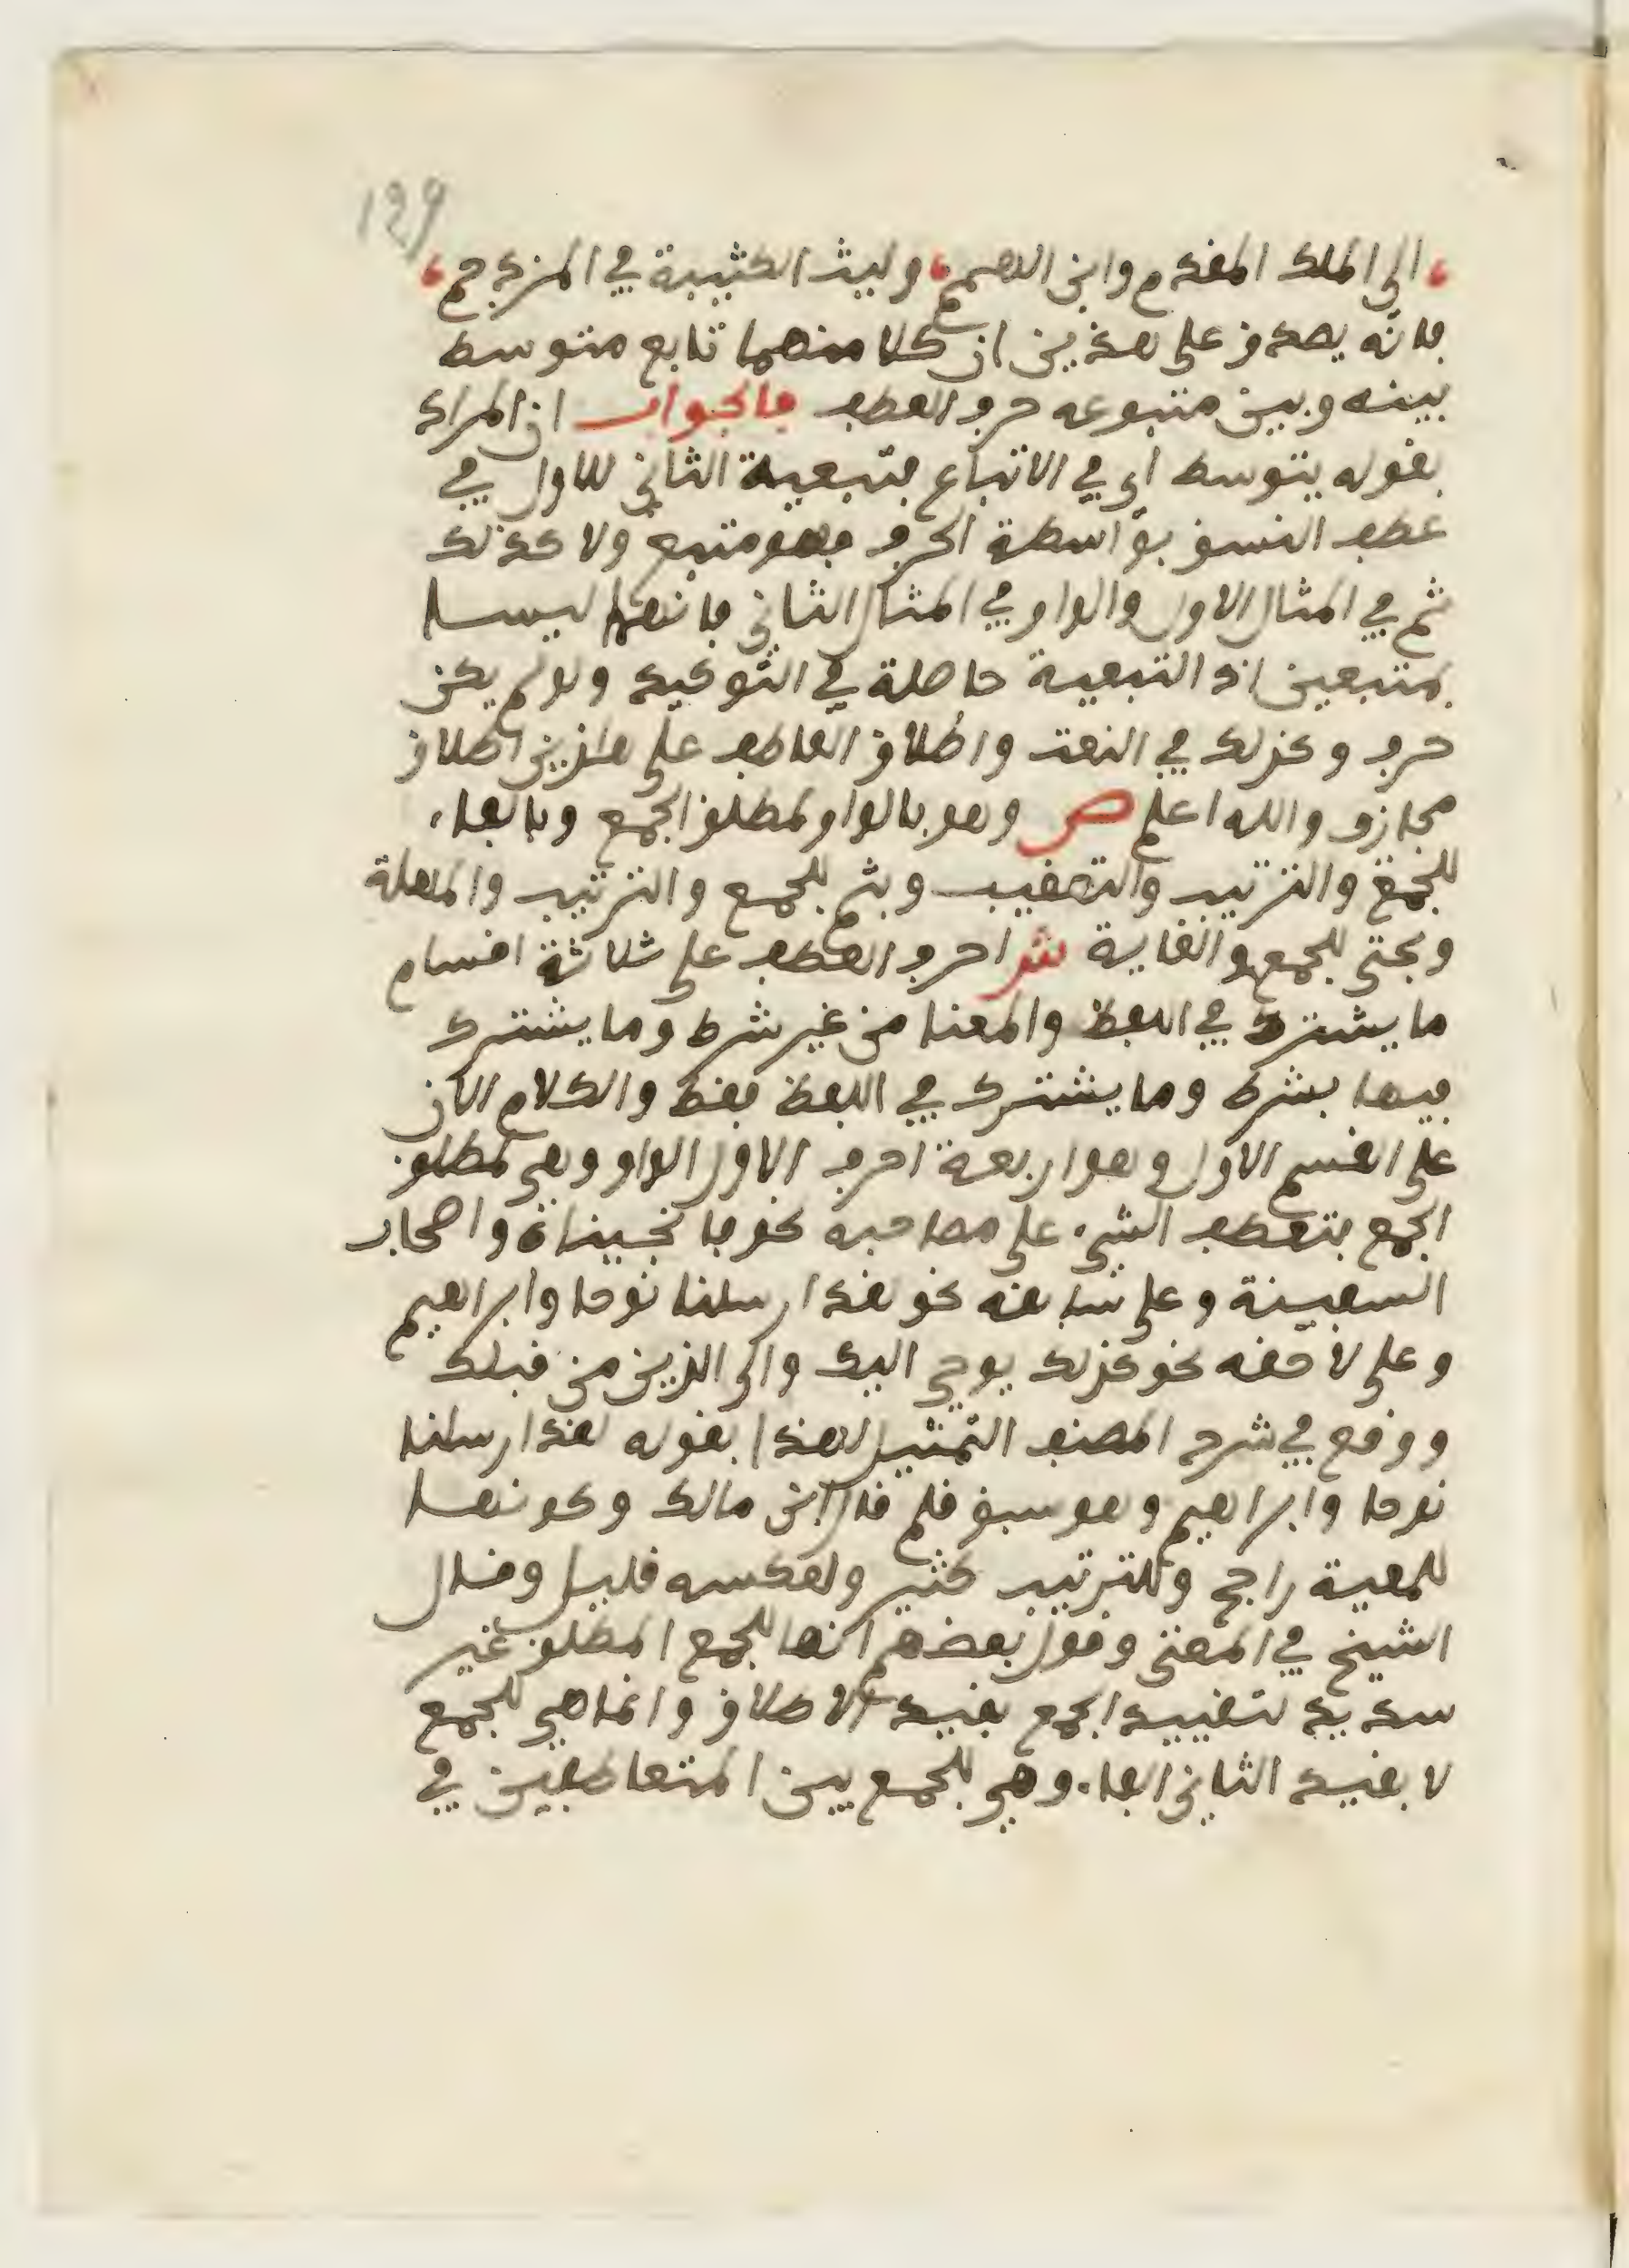 129
الى الملك المقدم وابن الهمم، وليث الكثيبة في المزدحم،
فانه يصدق على هذين ان كلا منهما تابع متوسط
بينه وبين متبوعه حرف العطف فالجواب ان المراد
بقوله يتوسط أي في الاتباع فتبعية الثاني للاول في
عطف النسق بواسطة الحرف فهو متبع ولا كذلك
ثم في المثال الاول والواو في المثال الثاني فانهما ليسا
بمتبعين اذ التبعية حاصلة في التوكيد ولو لم يكن
حرف وكذلك في النعت واطلاق العاطف على هاذين اطلاق
مجازي والله اعلم ص وهو بالواو لمطلق الجمع وبالفاء
للجمع والترتيب والتعقيب وبثم للجمع والترتيب والمهلة
وبحتى للجمع والغاية ش احرف العطف على ثلاثة اقسام
ما يشترك في اللفظ والمعنا من غير شرط وما يشترك
فيهما بشرط وما يشترك في اللفظ فقط والكلام الان
على القسم الاول وهو اربعة احرف الاول الواو وهي لمطلق
الجمع فتعطف الشيء على مصاحبه نحو فانجيناه واصحاب
السفينة وعلى سابقه نحو لقد ارسلنا نوحا وابراهيم
وعلى لاحقه نحو كذلك يوحي اليك والى الذين من قبلك
ووقع في شرح المصنف التمثيل لهذا بقوله لقد ارسلنا
نوحا وابراهيم وهو سبق قلم قال ابن مالك وكونها
للمعية راجح وللترتيب كثير ولعكسه قليل وقال
الشيخ في المغني وقول بعضهم انها للجمع المطلق غير
سديد لتقييد الجمع بقيد الاطلاق وانما هي للجمع
لا بقيد الثاني الفاء وهي للجمع بين المتعاطفين في